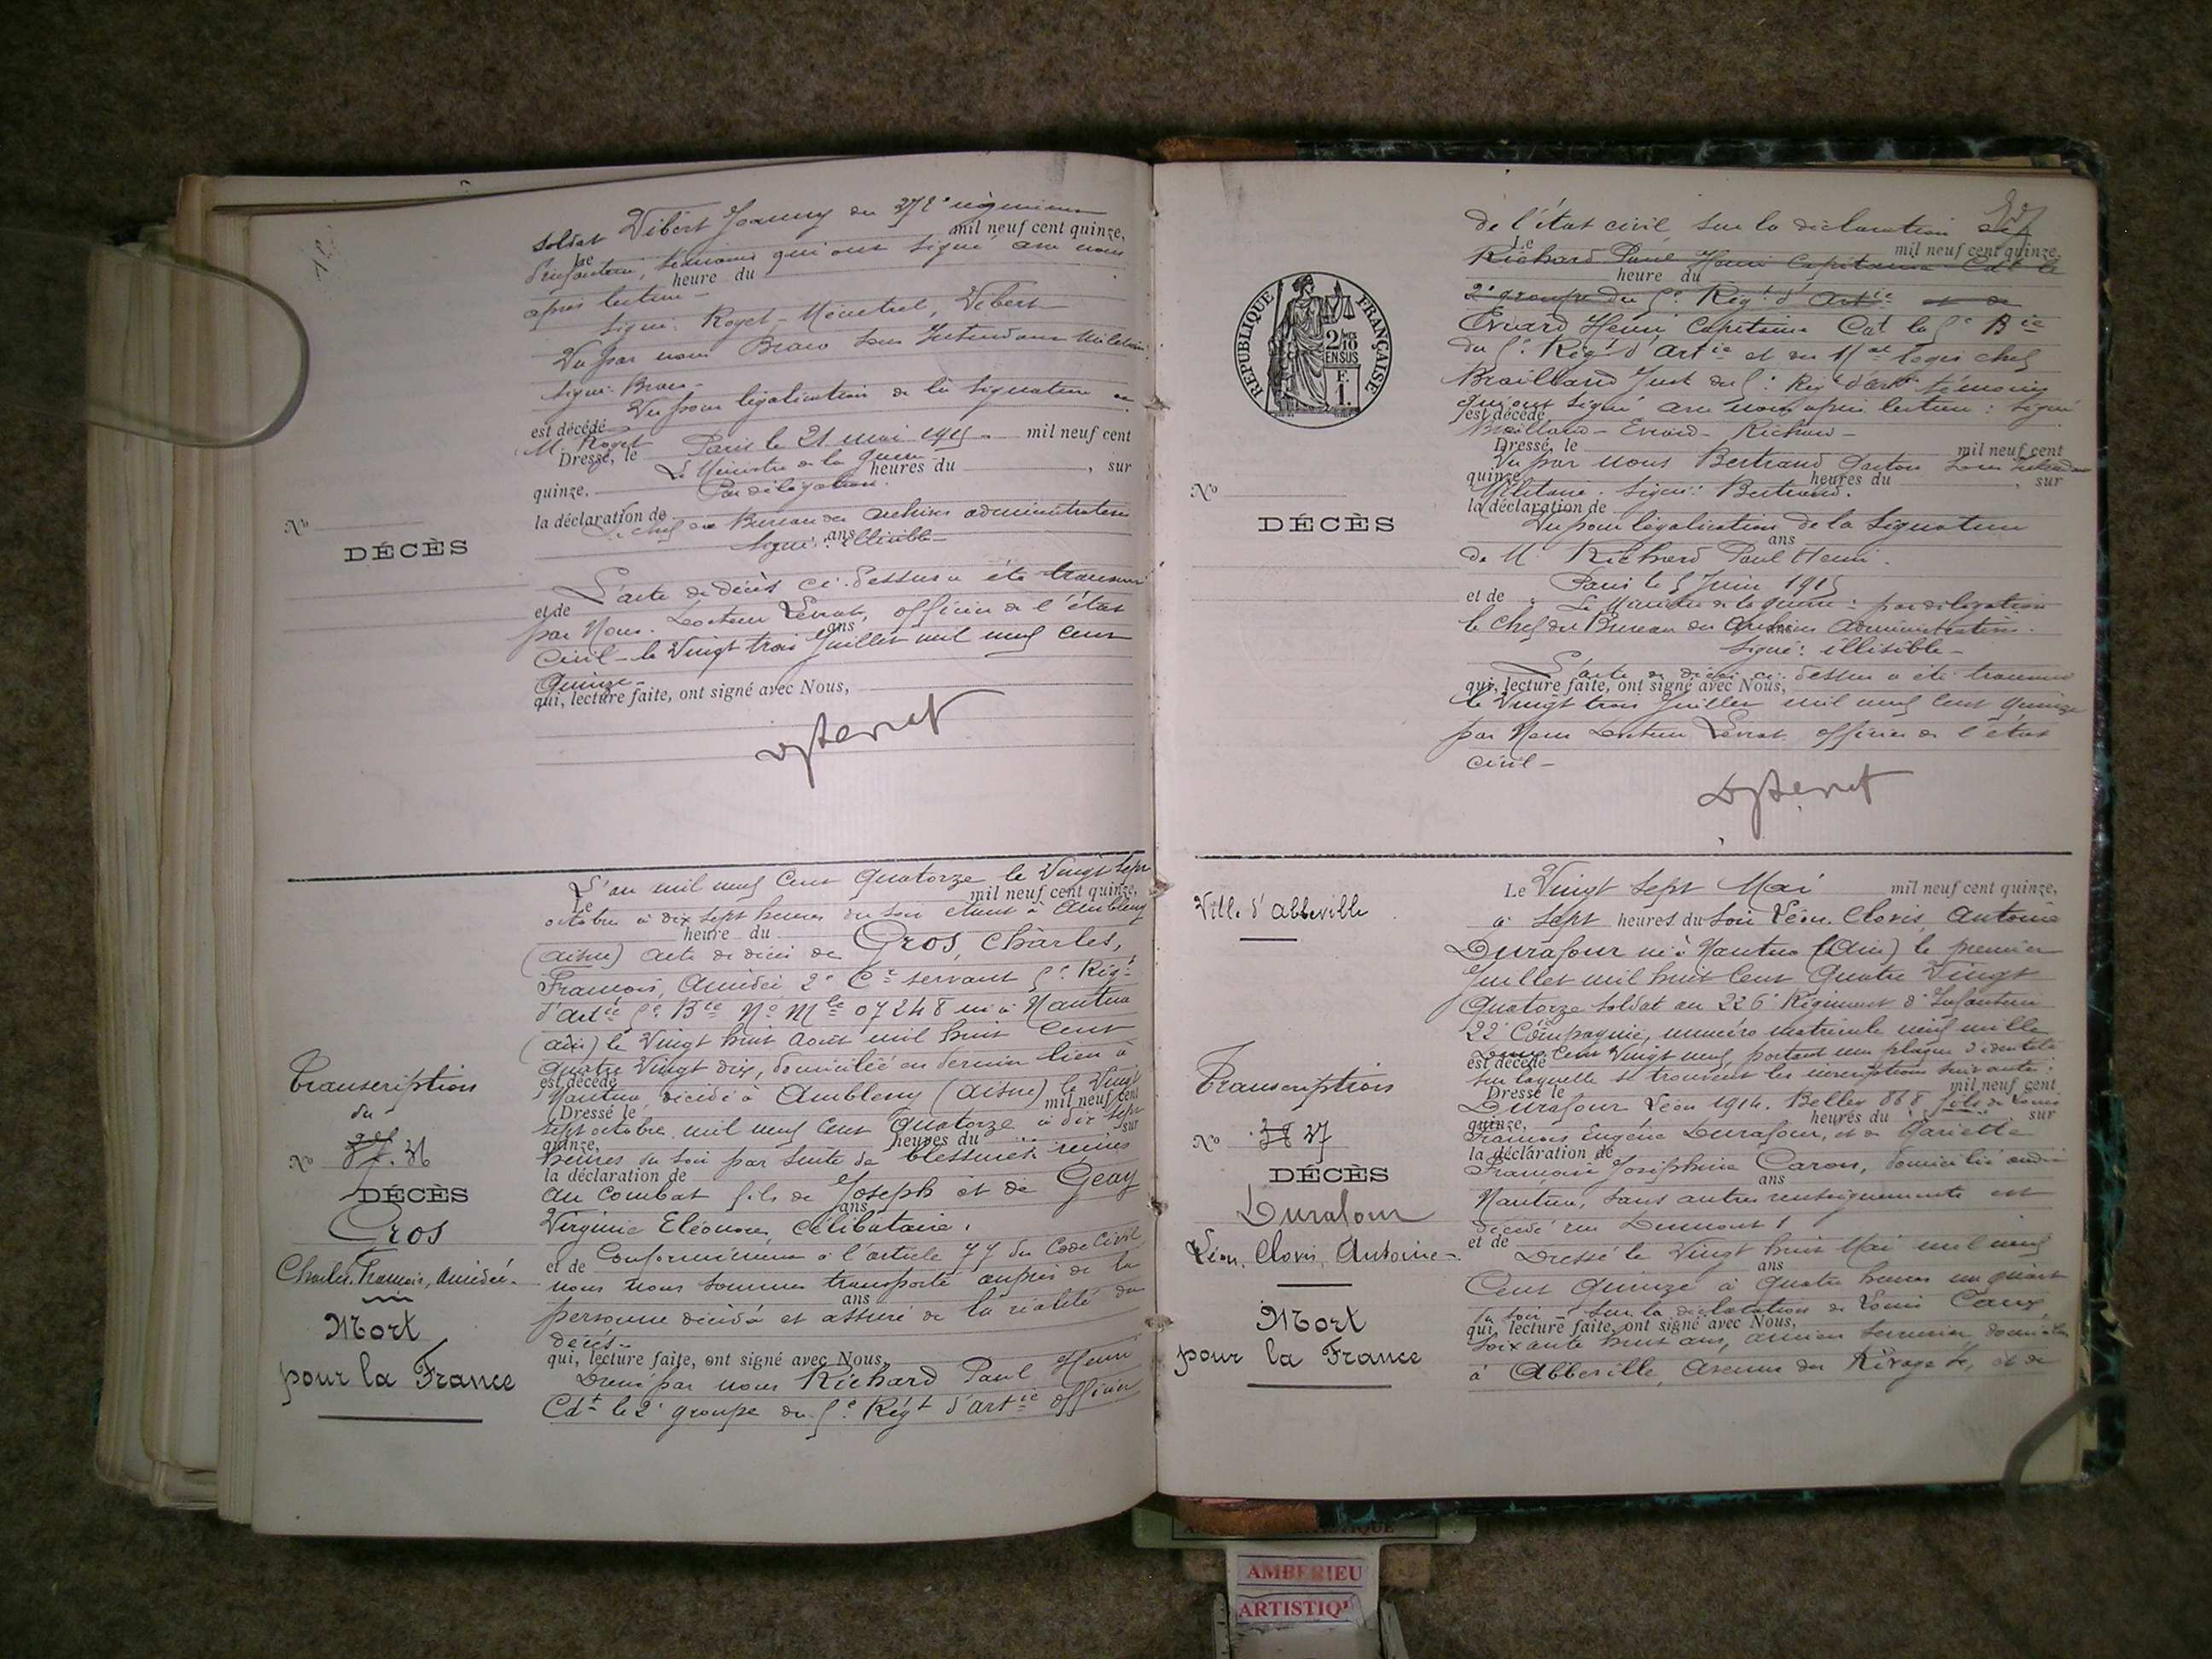 soldat Vibert Joanny du 372e régiment
Le mil neuf cent quinze,
d'infanterie, témoins qui ont signé avec nous
heure du
après lecture -
Signé: Royet - Ménétrel, Vibert
Vu par nous Sous Intendant Militaire
Signé:
Vu pour légalisation de la signature de
est décédé
M. Royet Paris le 21 mai 1915 - mil neuf cent
Dressé, le Le Ministre de la guerre heures du , sur
quinze. Par délégation.
la déclaration de
Le chef du Bureau des archives administratives
ans
signé: illisible -
N°
DÉCÈS
L'acte de décès ci-dessus a été transcrit
et de
par Nous Docteur Levrat, officier de l'état
ans
civil - le Vingt trois Juillet mil neuf cent
Quinze -
qui, lecture faite, ont signé avec Nous,
L'an mil neuf cent quatorze le Vingt sept
Le mil neuf cent quinze,
octobre à dix sept heures du soir étant à Ambleny
heure du
(Aisne) acte de décès de Gros, Charles,
François, Amédée 2e Cr servant 5e Régt
d'artie 5e Bie No Mle 07248 né à Nantua
(Ain) le Vingt huit août mil huit cent
quatre Vingt dix, domicilié en dernier lieu à
est décédé
Nantua, décédé à Ambleny (Aisne) le Vingt
Dressé le mil neuf cent
sept octobre mil neuf cent quatorze à dix sept
quinze, heures du sur
heures du soir par suite de blessures reçues
la déclaration de
au combat fils de Joseph et de Geay
ans
Virginie Eléonore, célibataire.
et de Conformément à l'article 77 du Code Civil
nous nous sommes transporté auprès de la
ans
personne décédée et assuré de la réalité du
décès -
qui, lecture faite, ont signé avec Nous,
Dressé par nous Richard Paul Henri
Cdt le 2e groupe du 5e Régt d'artie officier
Transcription
du
N° 36
DÉCÈS
Gros
Charles, François, Amédée -
Mort
pour la France
de l'état civil, sur la déclaration de
Le mil neuf cent quinze,
Richard Paul Henri Capitaine Cdt le
heure du
2e groupe du 5e Régt d'Artie et de
Evrard Henri Capitaine Cdt la 5e Bie
du 5e Régt d'Artie et du Mal logis chef
Braillard Just du 5e Régt d'Artie témoins
qui ont signé avec nous après lecture: signé
est décédé
Braillard - Evrard - Richard -
Dressé, le mil neuf cent
Vu par nous Bertrand Gaston Sous Intendant
quinze, heures du , sur
Militaire. Signé: Bertrand.
la déclaration de
Vu pour légalisation de la signature
ans
de M Richard Paul Henri.
Paris le 5 Juin 1915
et de Le Ministre de la guerre: par délégation
le Chef du Bureau des Archives Administratives.
ans
signé: illisible -
L'acte de décès ci-dessus a été transcrit
qui, lecture faite, ont signé avec Nous,
le Vingt trois Juillet mil neuf cent quinze
par Nous Docteur Levrat officier de l'état
civil -
REPUBLIQUE FRANÇAISE
N°
DÉCÈS
Ville d'Abbeville
Transcription
N° 37
DÉCÈS
Durafour
Léon, Clovis, Antoine -
Mort
pour la France
Le Vingt sept Mai mil neuf cent quinze,
à sept heures du soir Léon, Clovis, Antoine
Durafour né à Nantua (Ain) le premier
Juillet mil huit cent Quatre Vingt
Quatorze soldat au 226e Régiment d'Infanterie
22e Compagnie, numéro matricule neuf mille
cent Vingt neuf, portant une plaque d'identité
est décédé
sur laquelle se trouvent les inscriptions suivantes:
Dressé le mil neuf cent
Durafour Léon 1914. Belley 868 fils de Louis
quinze, heures du sur
François Eugène Durafour, et de Mariette
la déclaration de
Françoise Joséphine Caron, domicilié audit
ans
Nantua, sans autres renseignements est
décédé rue Dumont 1
et de
Dressé le Vingt huit Mai mil neuf
ans
Cent Quinze à quatre heures un quart
du soir sur la déclaration de Louis
qui, lecture faite, ont signé avec Nous,
soixante huit ans, ancien domicilié
à Abbeville, Avenue du Rivage et de
AMBERIEU
ARTISTIQ